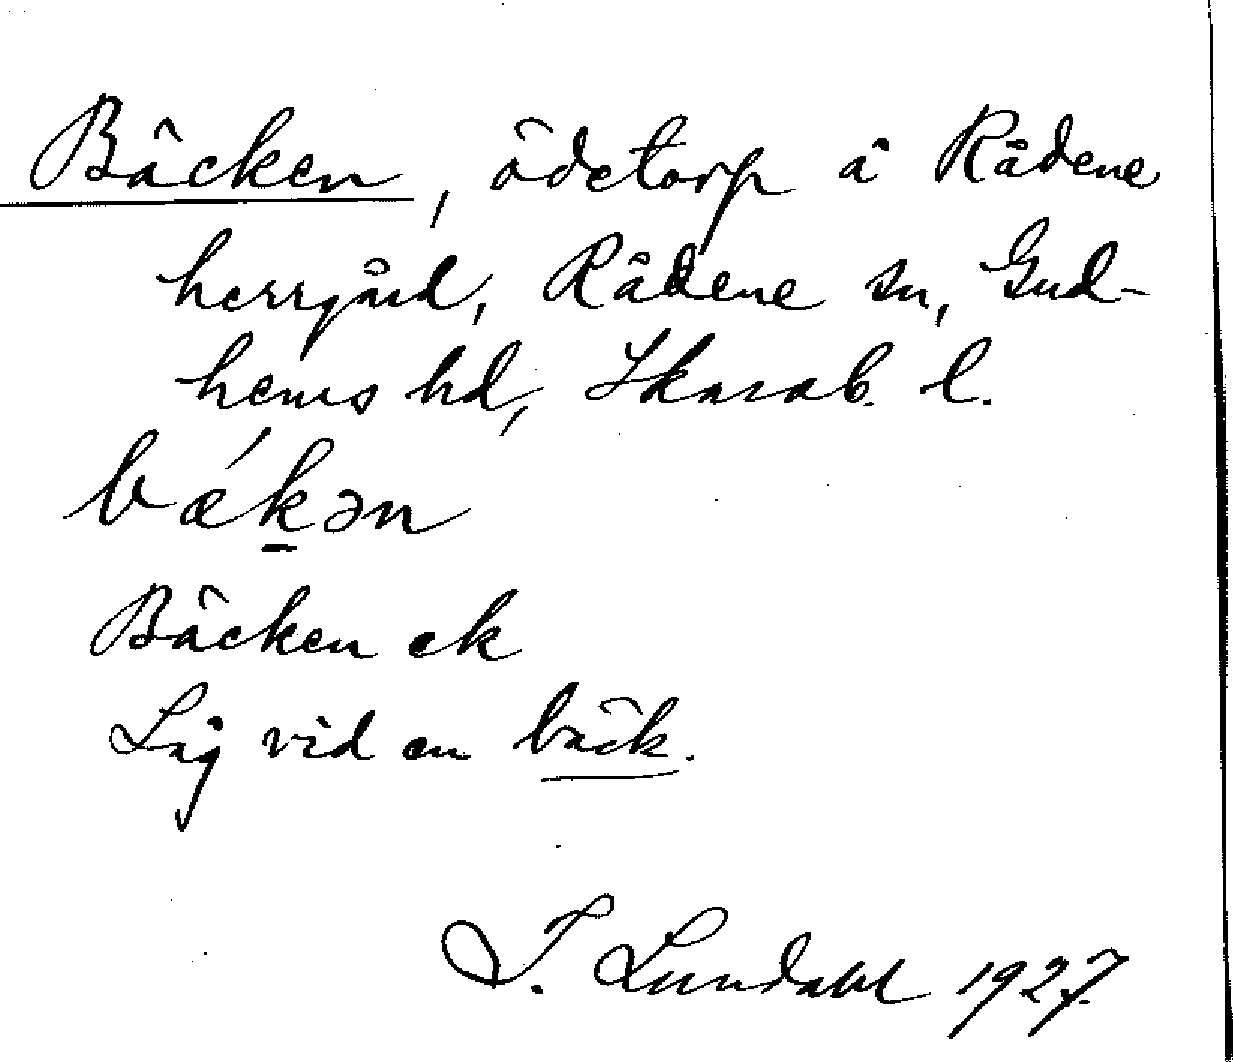 Bäcken, ödetorp å Rådene
herrgård, Rådene sn, Gud-
hems hd, Skarab. l.
bǽk̲ən
Bäcken ek
Låg vid en bäck.
I. Lundahl 1927.